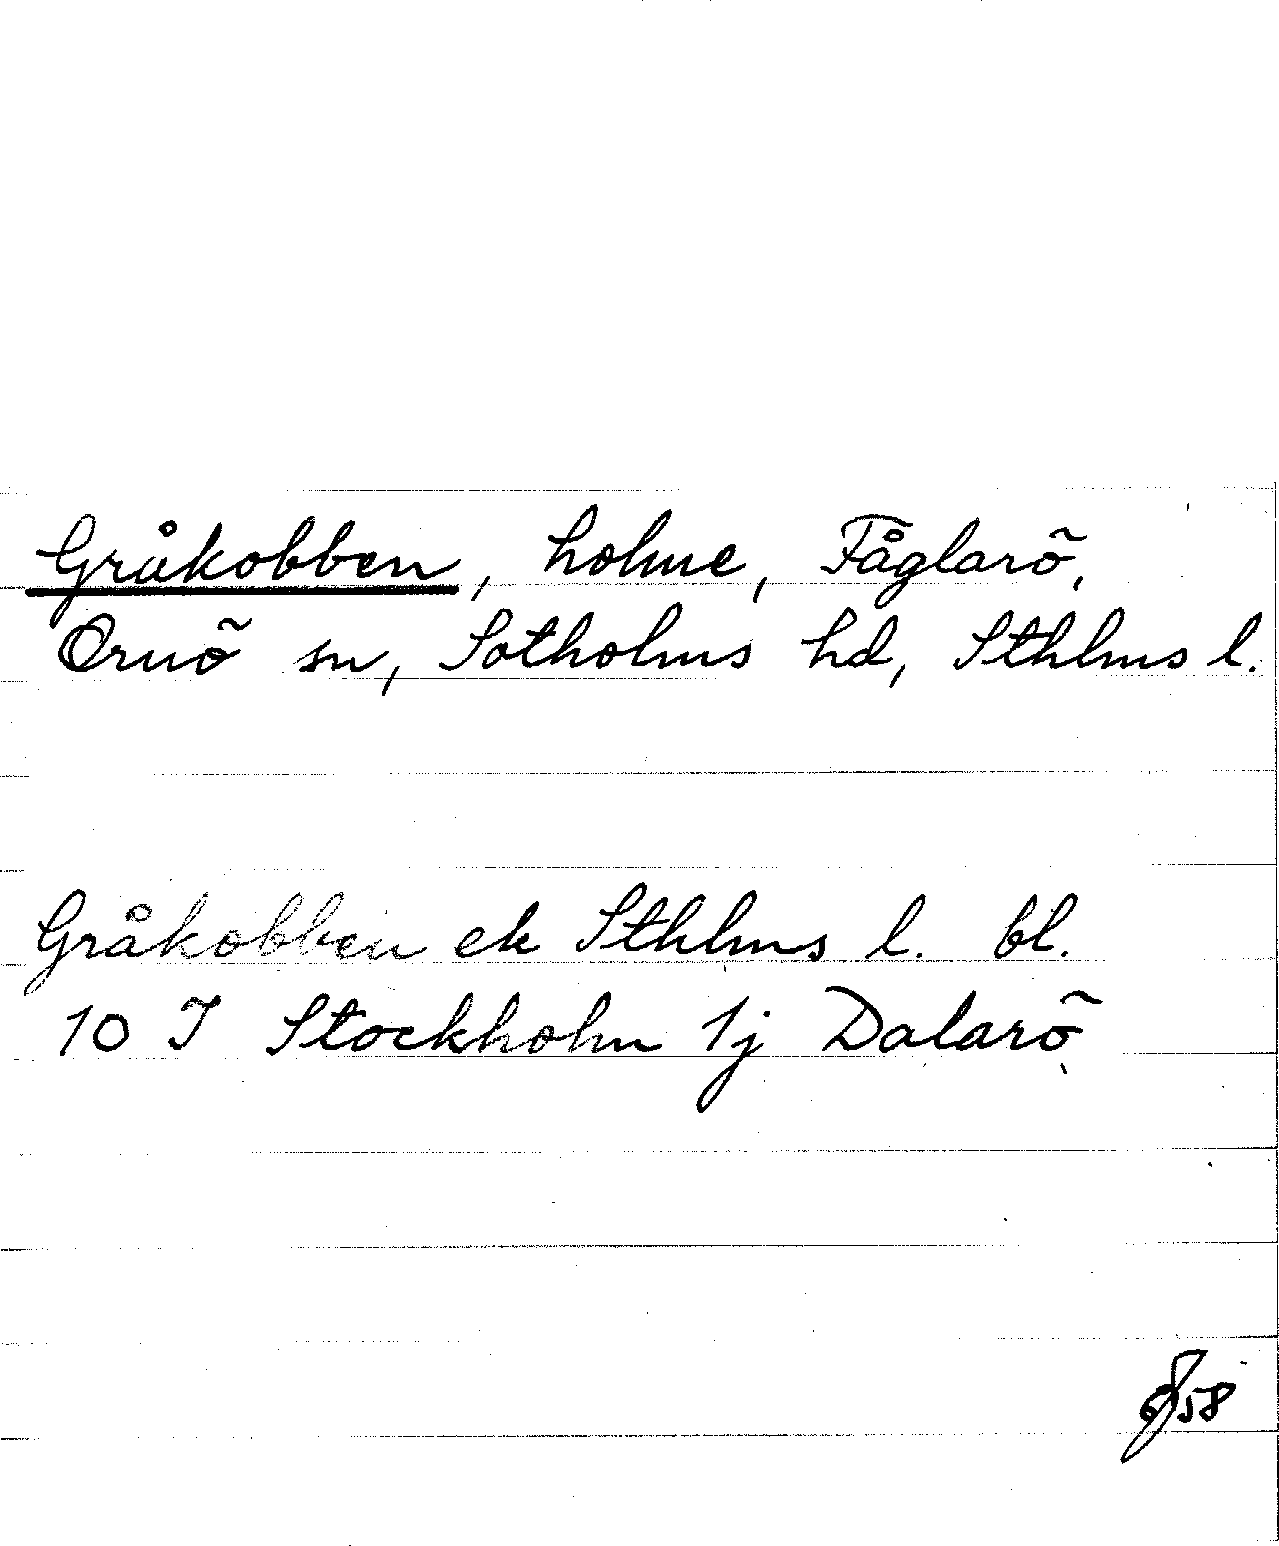 Gråkobben, holme, Fåglarö,
Ornö sn, Sotholms hd, Sthlms l.
Gråkobben ek Sthlms l. bl.
10 I Stockholm 1j Dalarö
58